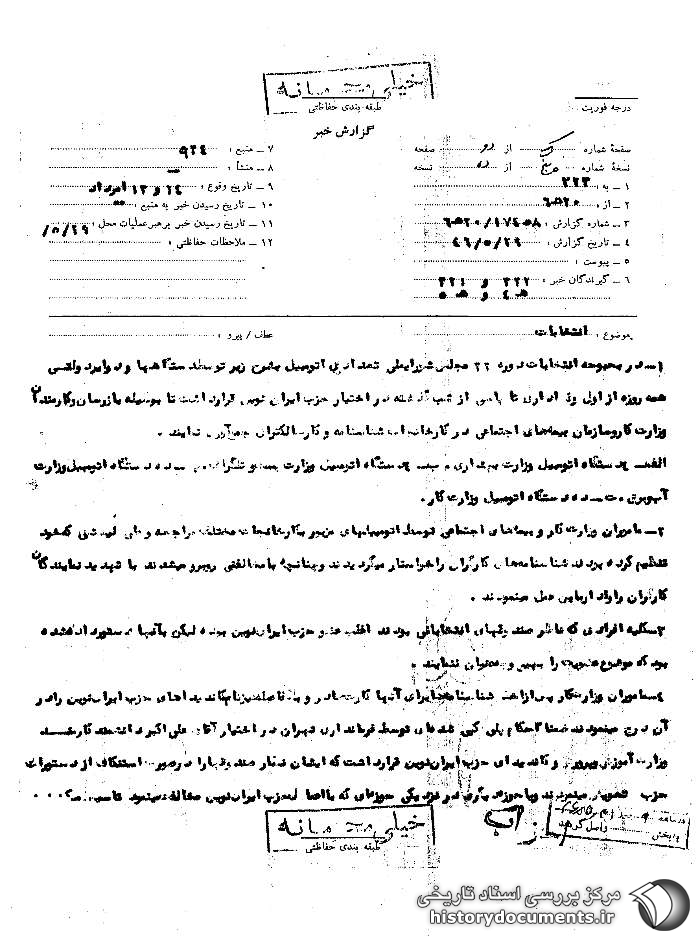 خیلی محرمانه
طبقه بندی حفاظتی
درجه فوریت
گزارش خبر
صفحهٔ شماره یک از دو صفحه
نسخهٔ شماره از نسخه
۱ ـ به : ۳۲۳
۲ ـ از : ۲۰ﻫ۶
۳ ـ شماره گزارش : ۱۷۴۵۸/۲۰ﻫ۶
۴ ـ تاریخ گزارش : ۴۶/۵/۲۹
۵ ـ پیوست :
۶ ـ گیرندگان خبر : ۳۲۲ و ۳۲۱
۷ ـ منبع : ۹۲۴
۸ ـ منشأ :
۹ ـ تاریخ وقوع : ۱۲ و ۱۳ امرداد
۱۰ ـ تاریخ رسیدن خبر به منبع :
۱۱ ـ تاریخ رسیدن خبر برهبرعملیات محل : /۵/۲۹
۱۲ ـ ملاحظات حفاظتی :
موضوع : انتخابات
عطف / پیرو :
۱ـ در بحبوحه انتخابات دوره ۲۲ مجلس شورایملی تعدادی اتومبیل بشرح زیر توسط دستگاهها و دوایر دولتی
همه روزه از اول وقت اداری تا پاسی از شب گذشته در اختیار حزب ایران نوین قرار داشت تا بوسیله بازرسان وکارمندان
وزارت کار وسازمان بیمه‌های اجتماعی در کارخانجات شناسنامه و کارت الکترال جمع‌آوری نمایند .
الف ـ دستگاه اتومبیل وزارت بهداری ـ ب ـ دستگاه اتومبیل وزارت پست و تلگراف ـ دستگاه اتومبیل وزارت
آب و برق ـ ت ـ ده دستگاه اتومبیل وزارت کار .
۲ـ ماموران وزارت کار و بیمه‌های اجتماعی توسط اتومبیلهای مزبور بکارخانجات مختلف مراجعه و طی لیستی که خود
تنظیم کرده بودند شناسنامه‌های کارگران را خواستار میگردیدند و چنانچه با مخالفتی روبرو میشدند با تهدید نمایندگان
کارگران را وادار باین عمل مینمودند .
۳ـ کلیه افرادی که ناظر صندوقهای انتخاباتی بودند اغلب عضو حزب ایران نوین بوده لیکن بآنها دستور داده شده
بود که موضوع عضویت را بهیچ وجه عنوان ننمایند .
۴ـ ماموران وزارت کار پس از اخذ شناسنامه برای آنها کارت صادر و بلافاصله نیز نام کاندیداهای حزب ایران نوین را در
آن درج مینمودند ضمنا احکام پلی کپی شده‌ای توسط فرمانداری تهران در اختیار آقای علی اکبر دانشمند کارمند
وزارت آموزش و پرورش و کاندیدای حزب ایران نوین قرار داشت که ایشان نظار صندوقها را در صورت استنکاف از دستورات
حزب تعویض مینمودند ویا حوزه دیگری در نزدیکی حوزه‌ای که با اصل حزب ایران نوین مخالفت مینمود تاسیس میکرد . . .
خیلی محرمانه
طبقه بندی حفاظتی
مرکز بررسی اسناد تاریخی
historydocuments.ir